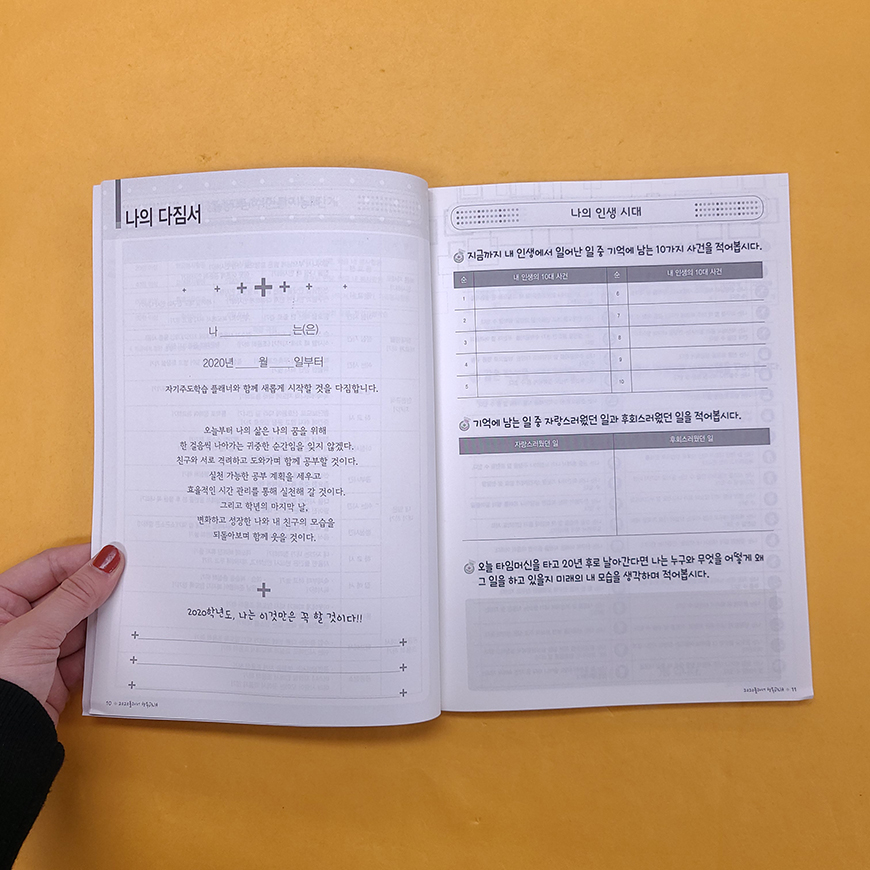 나의 다짐서
나 ____________ 는(은)
2020년 ____ 월 ____ 일부터
자기주도학습 플래너와 함께 새롭게 시작할 것을 다짐합니다.
오늘부터 나의 삶은 나의 꿈을 위해
한 걸음씩 나아가는 귀중한 순간임을 잊지 않겠다.
친구와 서로 격려하고 도와가며 함께 공부할 것이다.
실천 가능한 공부 계획을 세우고
효율적인 시간 관리를 통해 실천해 갈 것이다.
그리고 학년의 마지막 날,
변화하고 성장한 나와 내 친구의 모습을
되돌아보며 함께 웃을 것이다.
2020학년도, 나는 이것만은 꼭 할 것이다!!
10
나의 인생 시대
지금까지 내 인생에서 일어난 일 중 기억에 남는 10가지 사건을 적어봅시다.
순 내 인생의 10대 사건 순 내 인생의 10대 사건
1 6
2 7
3 8
4 9
5 10
기억에 남는 일 중 자랑스러웠던 일과 후회스러웠던 일을 적어봅시다.
자랑스러웠던 일 후회스러웠던 일
오늘 타임머신을 타고 20년 후로 날아간다면 나는 누구와 무엇을 어떻게 왜
그 일을 하고 있을지 미래의 내 모습을 생각하며 적어봅시다.
11